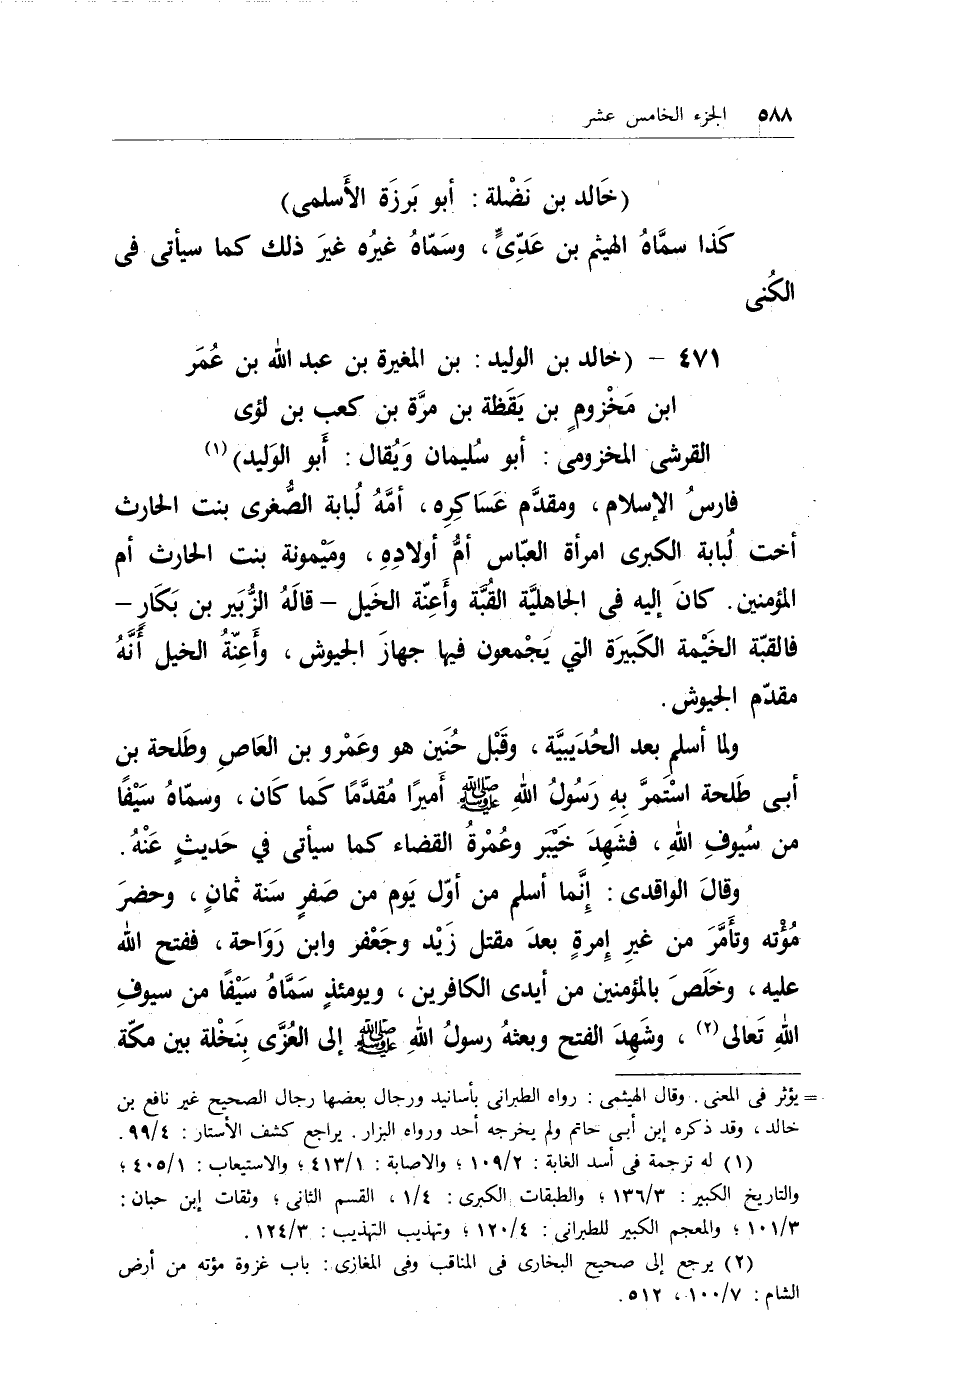 ٥٨٨ الجزء الخامس عشر
(خَالد بن نَضْلة : أبو بَرزَة الأَسلمى)
كَذا سمَّاهُ الهيثم بن عَدِّىٍّ ، وسَمّاهُ غيرُه غيرَ ذلك كما سيأتى فى
الكُنى
٤٧١ – (خالد بن الوليد : بن المغيرة بن عبد الله بن عُمَر
ابن مَخْزومٍ بن يَقَظة بن مرَّة بن كعب بن لؤى
القرشى المخزومى : أبو سُليمان وَيُقال : أَبو الوَليد)(١)
فارسُ الإسلام ، ومقدَّم عَسَاكِرِه ، أمَّهُ لُبابة الصُّغرى بنت الحارث
أخت لُبابة الكبرى امرأة العبّاس أمُّ أولادِهِ ، ومَيْمونة بنت الحارث أم
المؤمنين . كانَ إليه فى الجاهليَّة القُبَّة وأَعِنّة الخَيل – قالَهُ الزُّبَير بن بَكَارٍ –
فالقبّة الخَيْمة الكَبيرَة التي يَجْمعون فيها جهازَ الجيوش ، وأَعِنّةُ الخيل أَنَّهُ
مقدّم الجيوش .
ولما أسلم بعد الحُدَيبيَّة ، وقَبْل حُنَين هو وعَمْرو بن العَاصِ وطَلحة بن
أبى طَلحة اسْتَمرَّ بِهِ رَسُولُ اللهِ ﷺ أَميرًا مُقدَّمًا كَما كَان ، وسمّاهُ سَيْفًا
من سُيوفِ اللهِ ، فشَهِدَ خَيْبَر وعُمْرةُ القضاء كما سيأتى في حَديثٍ عَنْهُ .
وقالَ الواقدى : إنَّما أسلم من أوّل يَوم من صَفرٍ سَنة ثمانٍ ، وحضرَ
مُؤْته وتأَمَّرَ من غيرِ إمرةٍ بعدَ مقتل زَيْد وجَعْفر وابن رَوَاحة ، ففتح الله
عليه ، وخَلَصَ بالمؤمنين من أيدى الكافرين ، ويومئذٍ سَمَّاهُ سَيْفًا من سيوفِ
اللهِ تَعالى(٢) ، وشَهِدَ الفتح وبعثهُ رسولُ اللهِ ﷺ إلى العُزَّى بِنَخْلة بين مكّة
= يؤثر فى المعنى . وقال الهيثمى : رواه الطبرانى بأسانيد ورجال بعضها رجال الصحيح غير نافع بن
خالد ، وقد ذكره إبن أبى حاتم ولم يخرجه أحد ورواه البزار . يراجع كشف الأستار : ٩٩/٤ .
(١) له ترجمة فى أسد الغابة : ١٠٩/٢ ؛ والاصابة : ٤١٣/١ ؛ والاستيعاب : ٤٠٥/١ ؛
والتاريخ الكبير : ١٣٦/٣ ؛ والطبقات الكبرى : ١/٤ ، القسم الثانى ؛ وثقات إبن حبان :
١٠١/٣ ؛ والمعجم الكبير للطبرانى : ١٢٠/٤ ؛ وتهذيب التهذيب : ١٢٤/٣ .
(٢) يرجع إلى صحيح البخارى فى المناقب وفى المغازى : باب غزوة مؤته من أرض
الشام : ١٠٠/٧ ، ٥١٢ .